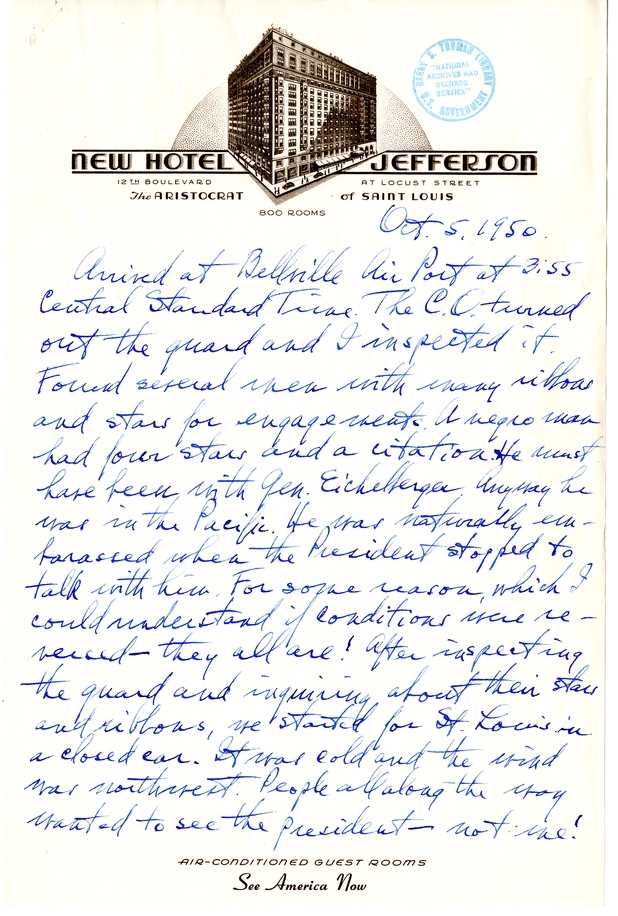 HARRY S. TRUMAN LIBRARY
"NATIONAL
ARCHIVES AND
RECORDS
SERVICE"
U.S. GOVERNMENT
NEW HOTEL JEFFERSON
12TH BOULEVARD AT LOCUST STREET
The ARISTOCRAT of SAINT LOUIS
800 ROOMS
Oct. 5, 1950.
Arrived at Bellville Air Port at 3:55
Central Standard Time. The C.O. turned
out the guard and I inspected it.
Found several men with many ribbons
and stars for engagements. A negro man
had four stars and a citation. He must
have been with Gen. Eichelberger. Anyway he
was in the Pacific. He was naturally em-
barassed when the President stopped to
talk with him. For some reason, which I
could understand if conditions were re-
versed—they all are! After inspecting
the guard and inquiring about their stars
and ribbons, we started for St. Louis in
a closed car. It was cold and the wind
was northwest. People all along the way
wanted to see the President—not me!
AIR-CONDITIONED GUEST ROOMS
See America Now